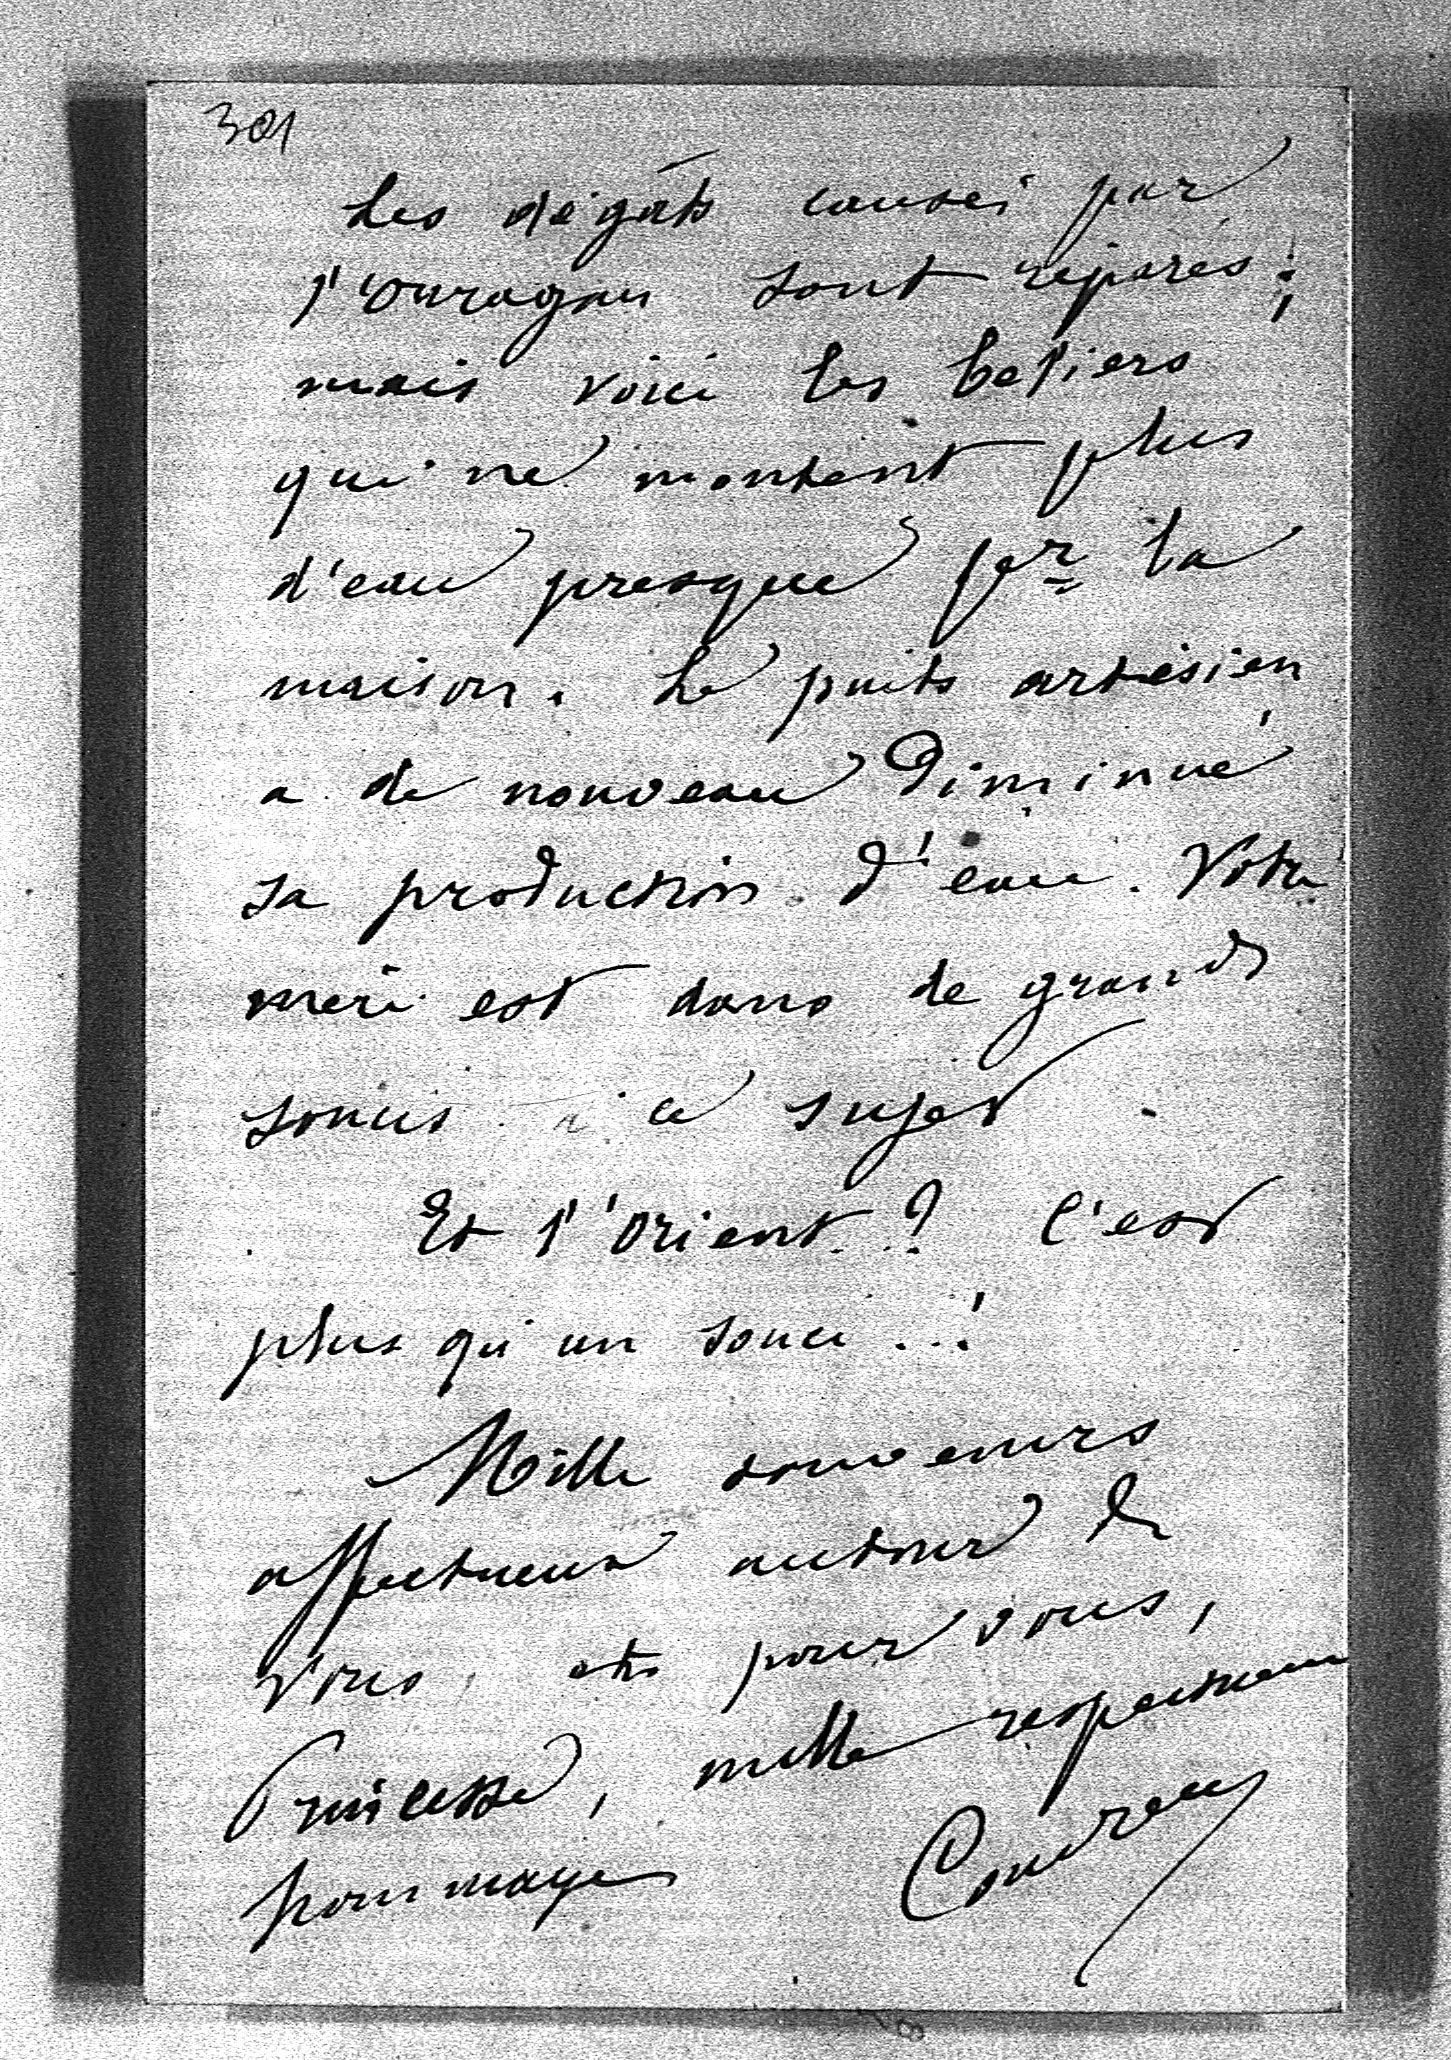 301
Les dégâts causés par
l'ouragan sont réparés ;
mais voici les beliers
qui ne montent plus
d'eau presque pr la
maison. Le puits artésien
a de nouveau diminué
sa production d'eau. Votre
mère est dans de grands
soucis à ce sujet.
Et l'Orient ? C'est
plus qu'un souci ..!
Mille souvenirs
affectueux autour de
vous et pour vous,
Princesse, mille respectueux
hommages